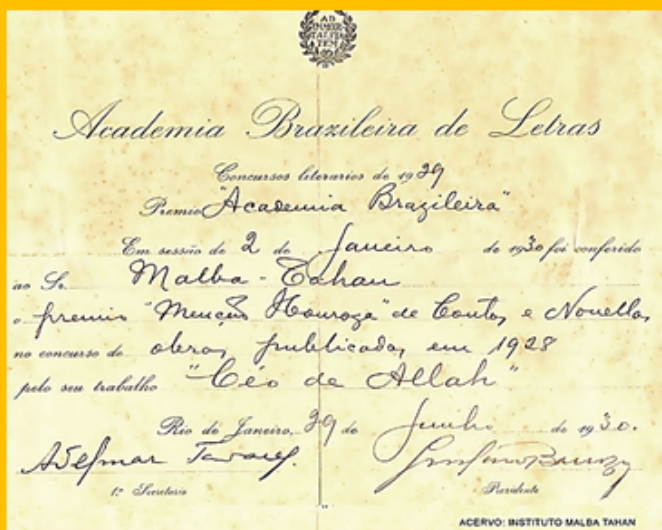 AD
IMMOR
TALITA
TEM
Academia Brazileira de Letras
Concursos literarios de 1929
Premio "Academia Brazileira"
Em sessão de 2 de Janeiro de 1930 foi conferido
ao Sr. Malba-Tahan
o premio "Menção Honroza" de Contos e Novellas
no concurso de obras publicadas em 1928
pelo seu trabalho "Céo de Allah"
Rio de Janeiro, 29 de Junho de 1930.
Adelmar Tavares
1º Secretario
Presidente
ACERVO: INSTITUTO MALBA TAHAN